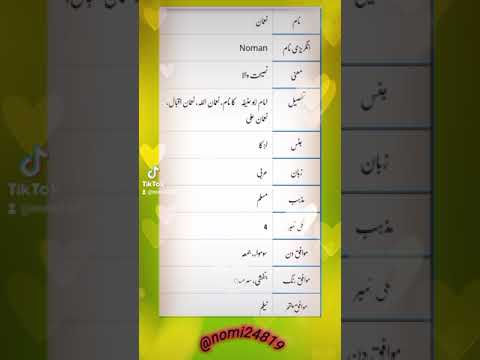 نام نعمان
انگریزی نام Noman
معنی نصیحت والا
تفصیل امام ابو حنیفہ کا نام، نعمان اللہ، نعمان اقبال،
نعمان علی
جنس لڑکا
زبان عربی
مذہب مسلم
لکی نمبر 4
موافق دن سوموار، جمعہ
موافق رنگ
موافق پتھر نیلم
جنس
زبان
مذہب
لکی نمبر
موافق دن
TikTok
@nomi24819